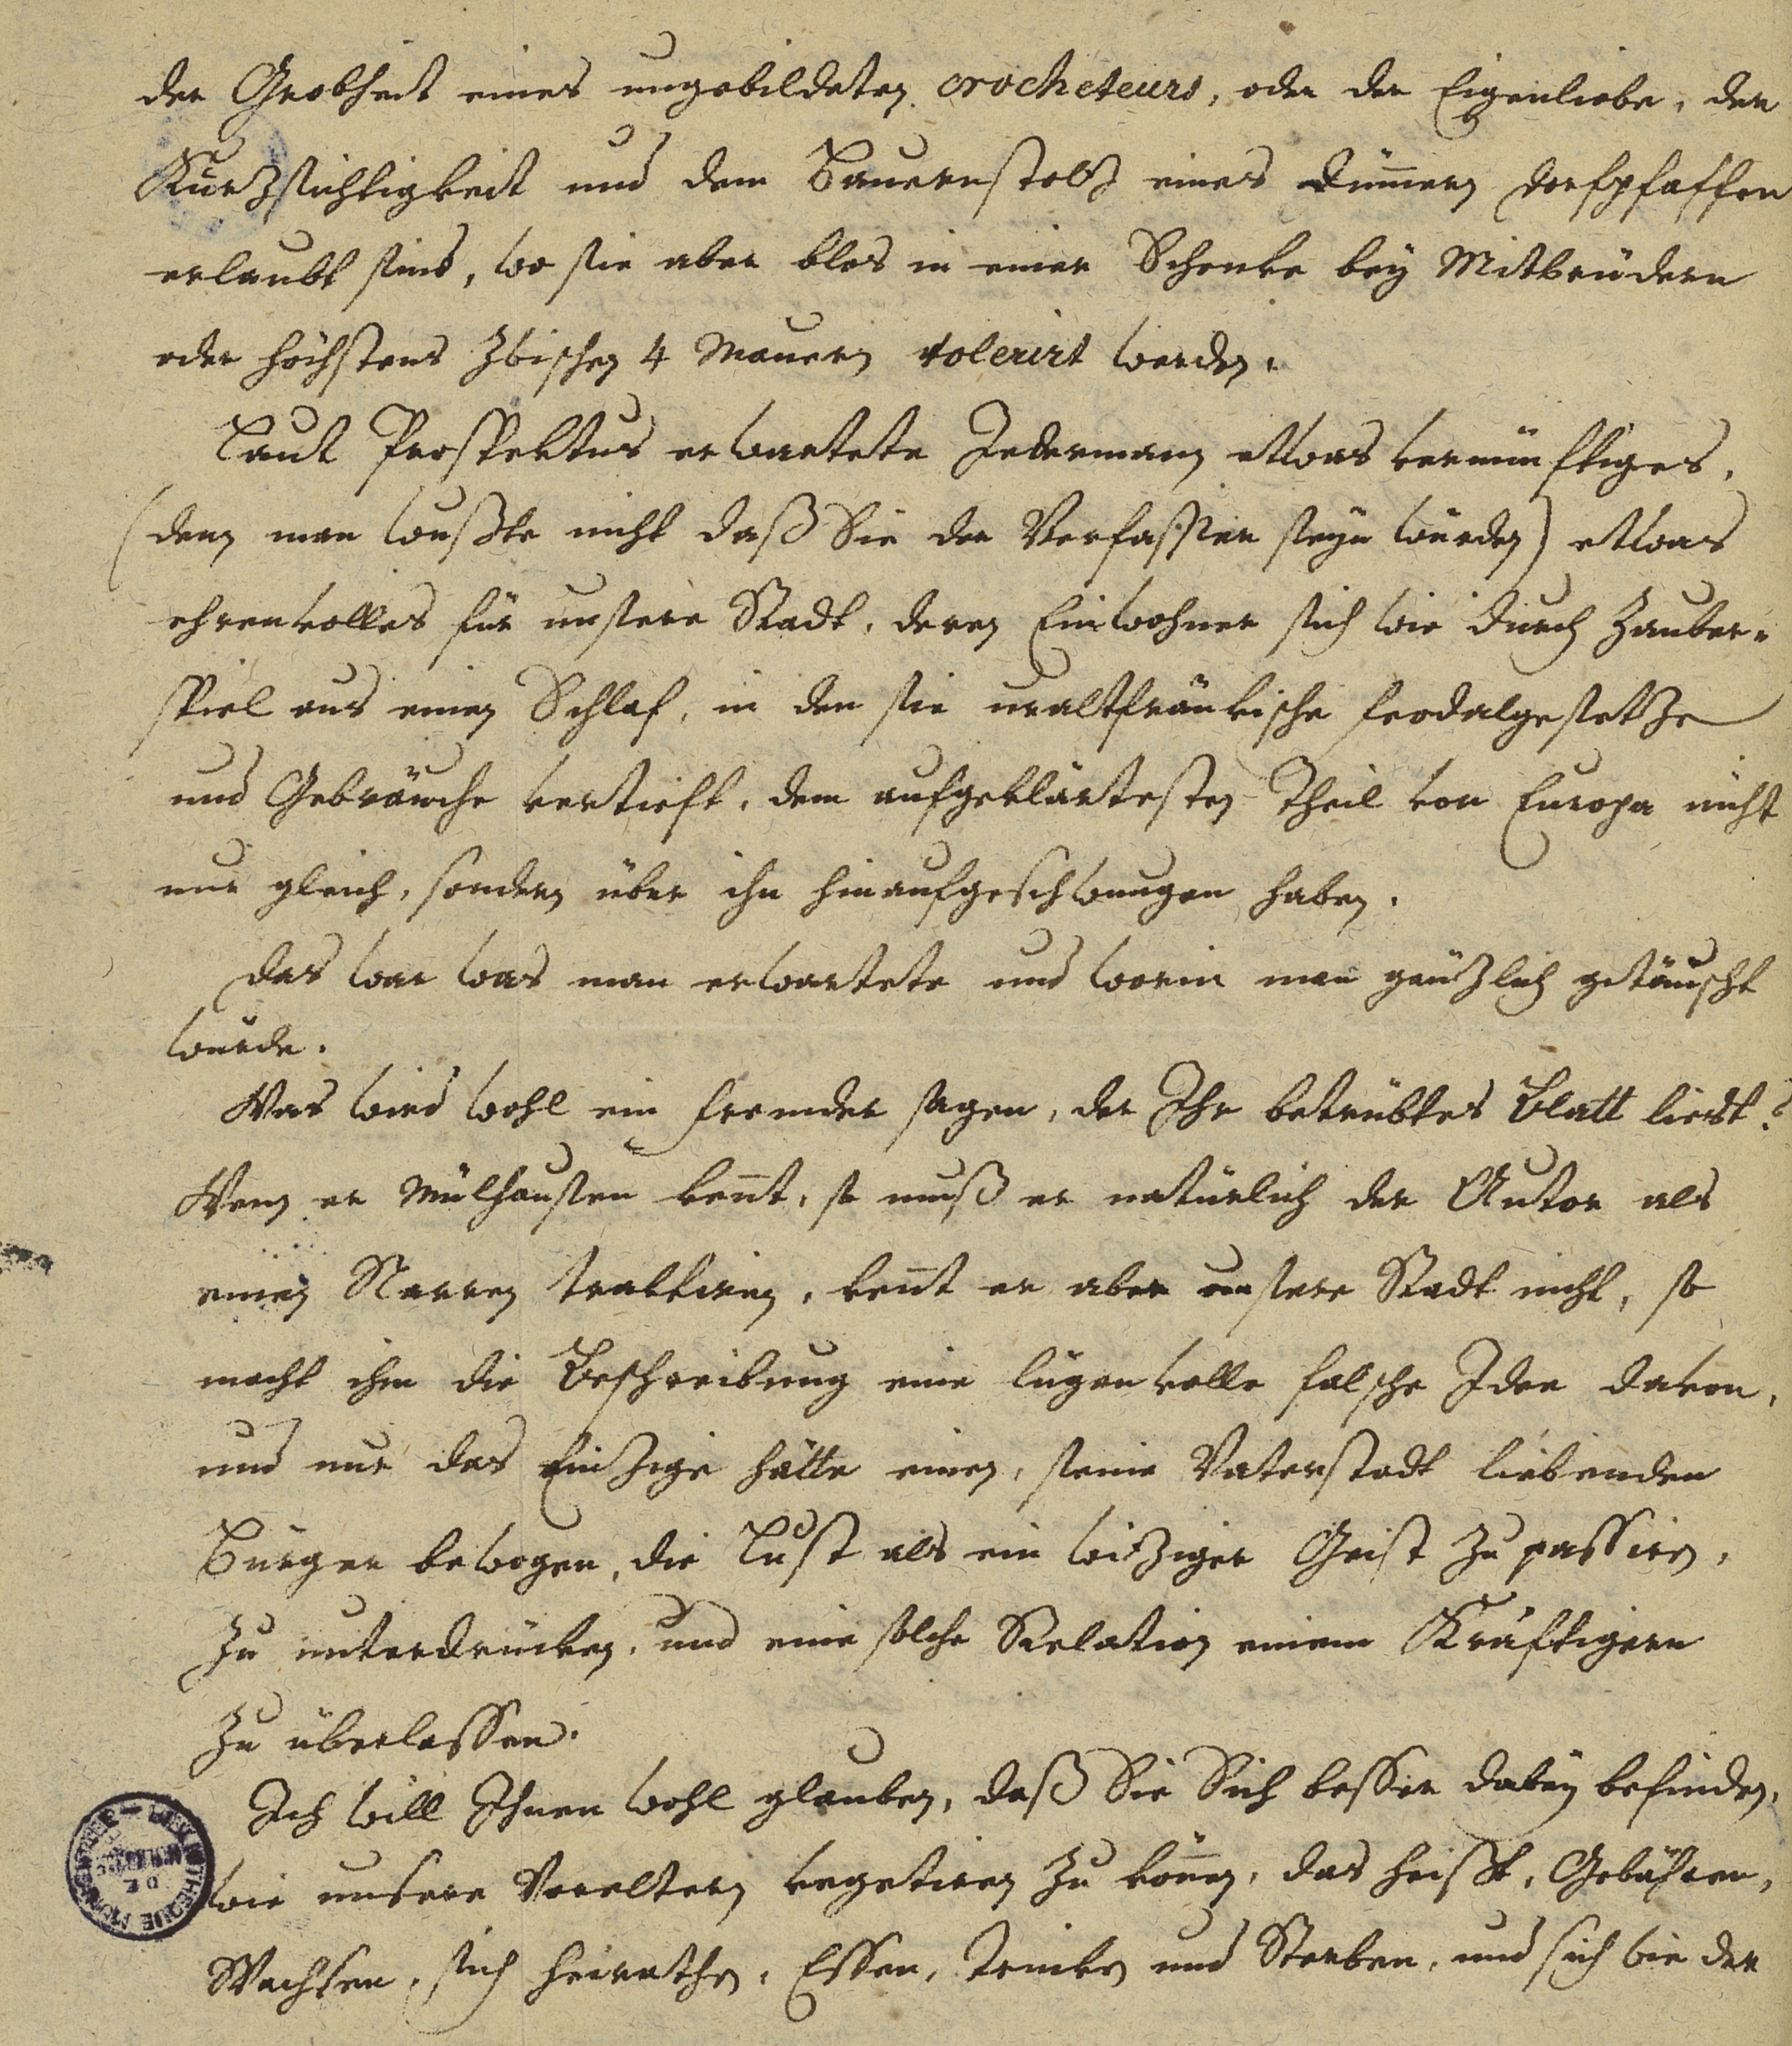 der Grobheit eines ungebildeten crocheteurs, oder der Eigenliebe, der
Kurzsichtigkeit und dem Bauernstolz eines dummen Dorfpfaffen
erlaubt sind, wo sie aber blos in einer Schenke bey Mitbrüdern
oder höchstens zwischen 4 Mauern tolerirt werden.
Laut Prospektus erwartete Jedermann etwas vernünftiges,
(denn man wußte nicht daß Sie der Verfasser seyn würden) etwas
ehrenvolles für unsere Stadt, deren Einwohner sich wie durch Zauber-
spiel aus einen Schlaf, in den sie uraltfränkische feodalgesetze
und Gebräuche vertieft, dem aufgeklärtesten Theil von Europa nicht
nur gleich, sondern über ihn hinaufgeschwungen haben.
Das war was man erwartete und worin man gänzlich getäuscht
wurde.
Was wird wohl ein fremder sagen, der Ihr betrübtes Blatt liest?
Wenn er Mülhausen kennt, so muß er natürlich der Autor als
einen Narren traktiren, kennt er aber unsere Stadt nicht, so
macht ihm die Beschreibung eine lügenvolle falsche Idee davon,
und nur das Einzige hätte einen, seine Vaterstadt liebenden
Bürger bewogen, die Lust als ein witziger Geist zu passiren,
zu unterdrücken, und eine solche Relation einem Kräftigern
zu überlassen.
Ich will Ihnen wohl glauben, daß Sie Sich besser dabey befinden,
wie unsere Voreltern vegetiren zu können, das heißt, Gebähren,
Wachsen, sich heirathen, Essen, Trinken und Sterben, und sich wie der